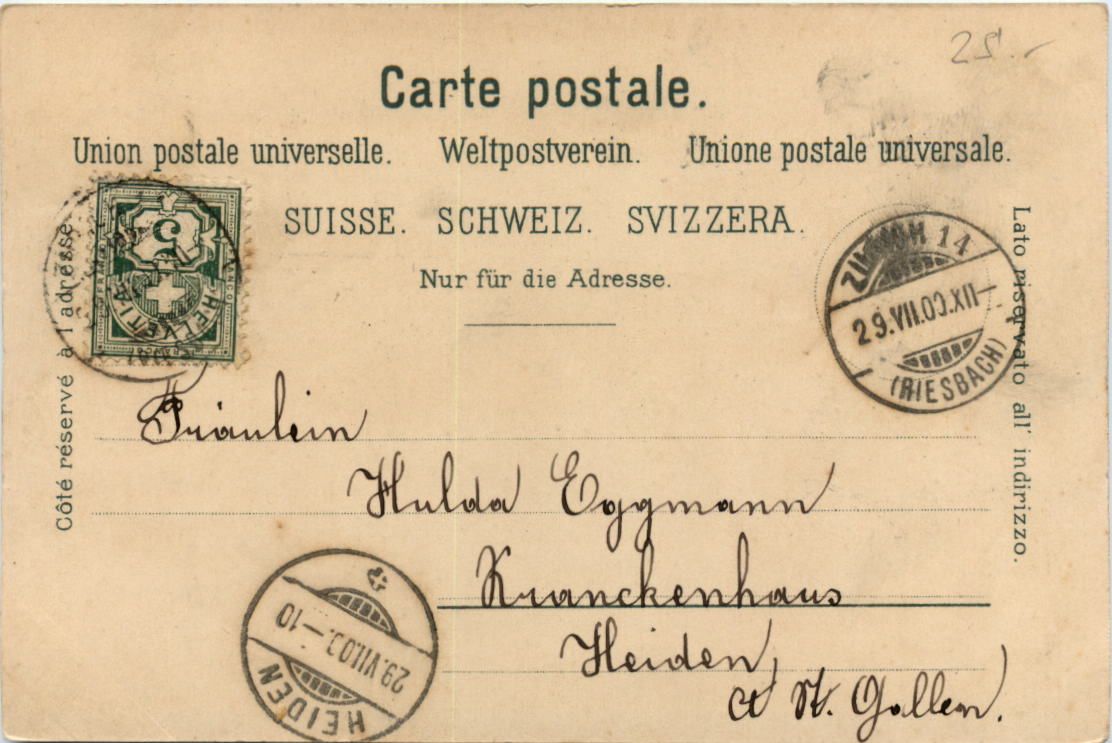 25.-
Carte postale.
Union postale universelle. Weltpostverein. Unione postale universale.
SUISSE. SCHWEIZ. SVIZZERA.
Nur für die Adresse.
Côté réservé à l'adresse
Lato riservato all' indirizzo.
5
HELVETIA
ZÜRICH 14
29.VII.00.XII-
(RIESBACH)
Fräulein
Hulda Eggmann
Kranckenhaus
Heiden
ct St. Gallen.
29.VII.00.-10
HEIDEN